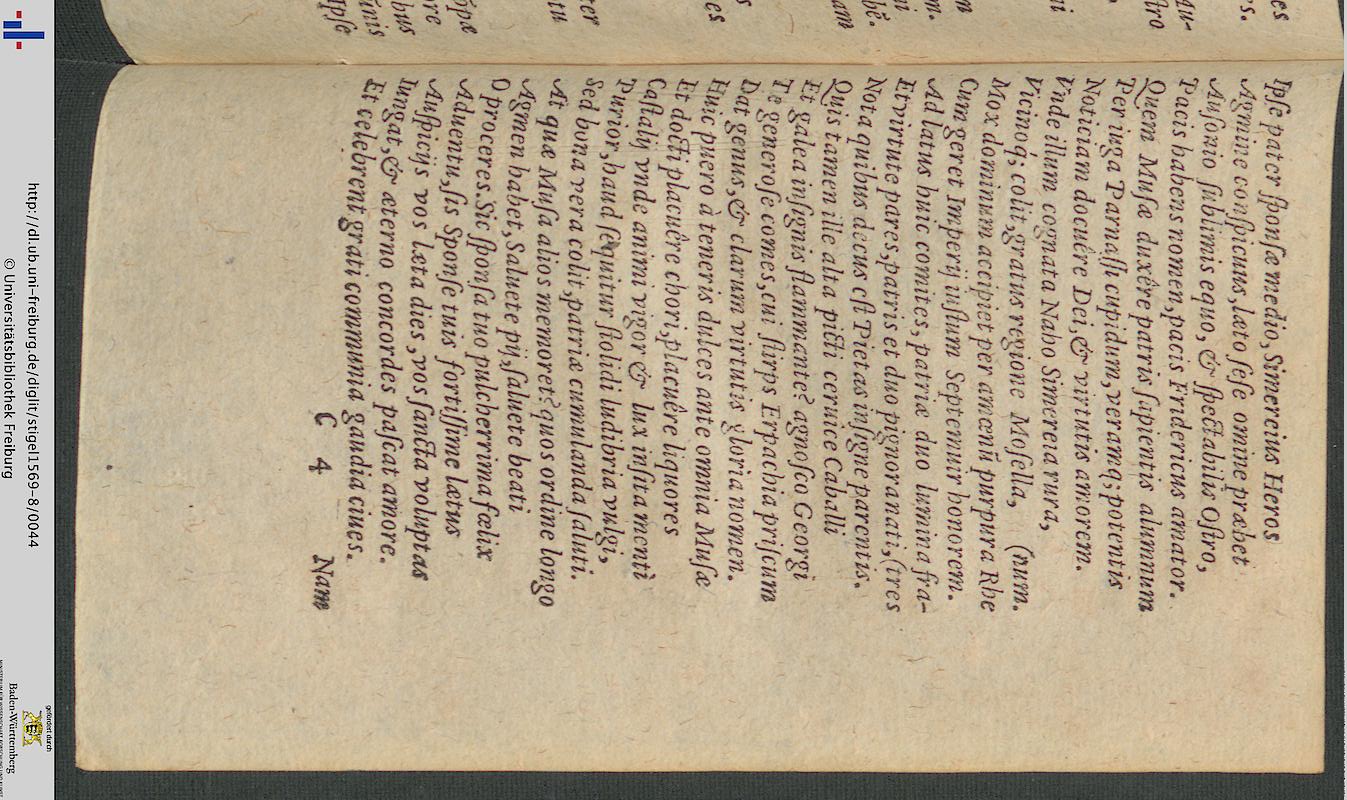 Ipſe pater ſponſæ medio, Simereius Heros
Agmine conſpicuus, læto ſeſe omine præbet
Auſonio ſublimis equo, & ſpectabilis Oſtro,
Pacis habens nomen, pacis Fridericus amator.
Quem Muſæ duxêre patris ſapientis alumnum
Per iuga Parnaſſi cupidum, veramq́; potentis
Noticiam docuêre Dei, & virtutis amorem.
Vnde illum cognata Nabo Simereia rura,
Vicinoq́; colit, gratus regione Moſella, (num.
Mox dominum accipiet per amœnũ purpura Rhe
Cum geret Imperij iuſtum Septemuir honorem.
Ad latus huic comites, patriæ duo lumina fra-
Et virtute pares, patris et duo pignora nati, (tres
Nota quibus decus eſt Pietas inſigne parentis.
Quis tamen ille alta picti ceruice Caballi
Et galea inſignis flammante? agnoſco Georgi
Te generoſe comes, cui ſtirps Erpachia priſcum
Dat genus, & clarum virtutis gloria nomen.
Huic puero à teneris dulces ante omnia Muſæ
Et docti placuêre chori, placuêre liquores
Caſtalij vnde animi vigor & lux inſita menti
Purior, haud ſequitur ſtolidi ludibria vulgi,
Sed bona vera colit, patriæ cumulanda ſaluti.
At quæ Muſa alios memoret? quos ordine longo
Agmen habet, Saluete pij, ſaluete beati
O proceres. Sic ſponſa tuo pulcherrima fœlix
Aduentu, ſis Sponſe tuis fortiſſime lætus
Auſpicijs vos læta dies, vos ſancta voluptas
Iungat, & æterno concordes paſcat amore.
Et celebrent grati communia gaudia ciues.
C 4 Nam
http://dl.ub.uni-freiburg.de/diglit/stigel1569-8/0044
© Universitätsbibliothek Freiburg
gefördert durch
Baden-Württemberg